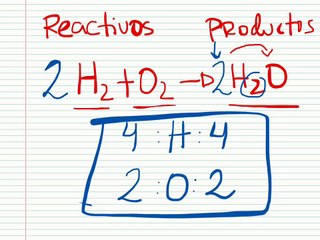 Reactivos productos
2 H₂ + O₂ → 2 H₂O
4 : H : 4
2 : O : 2